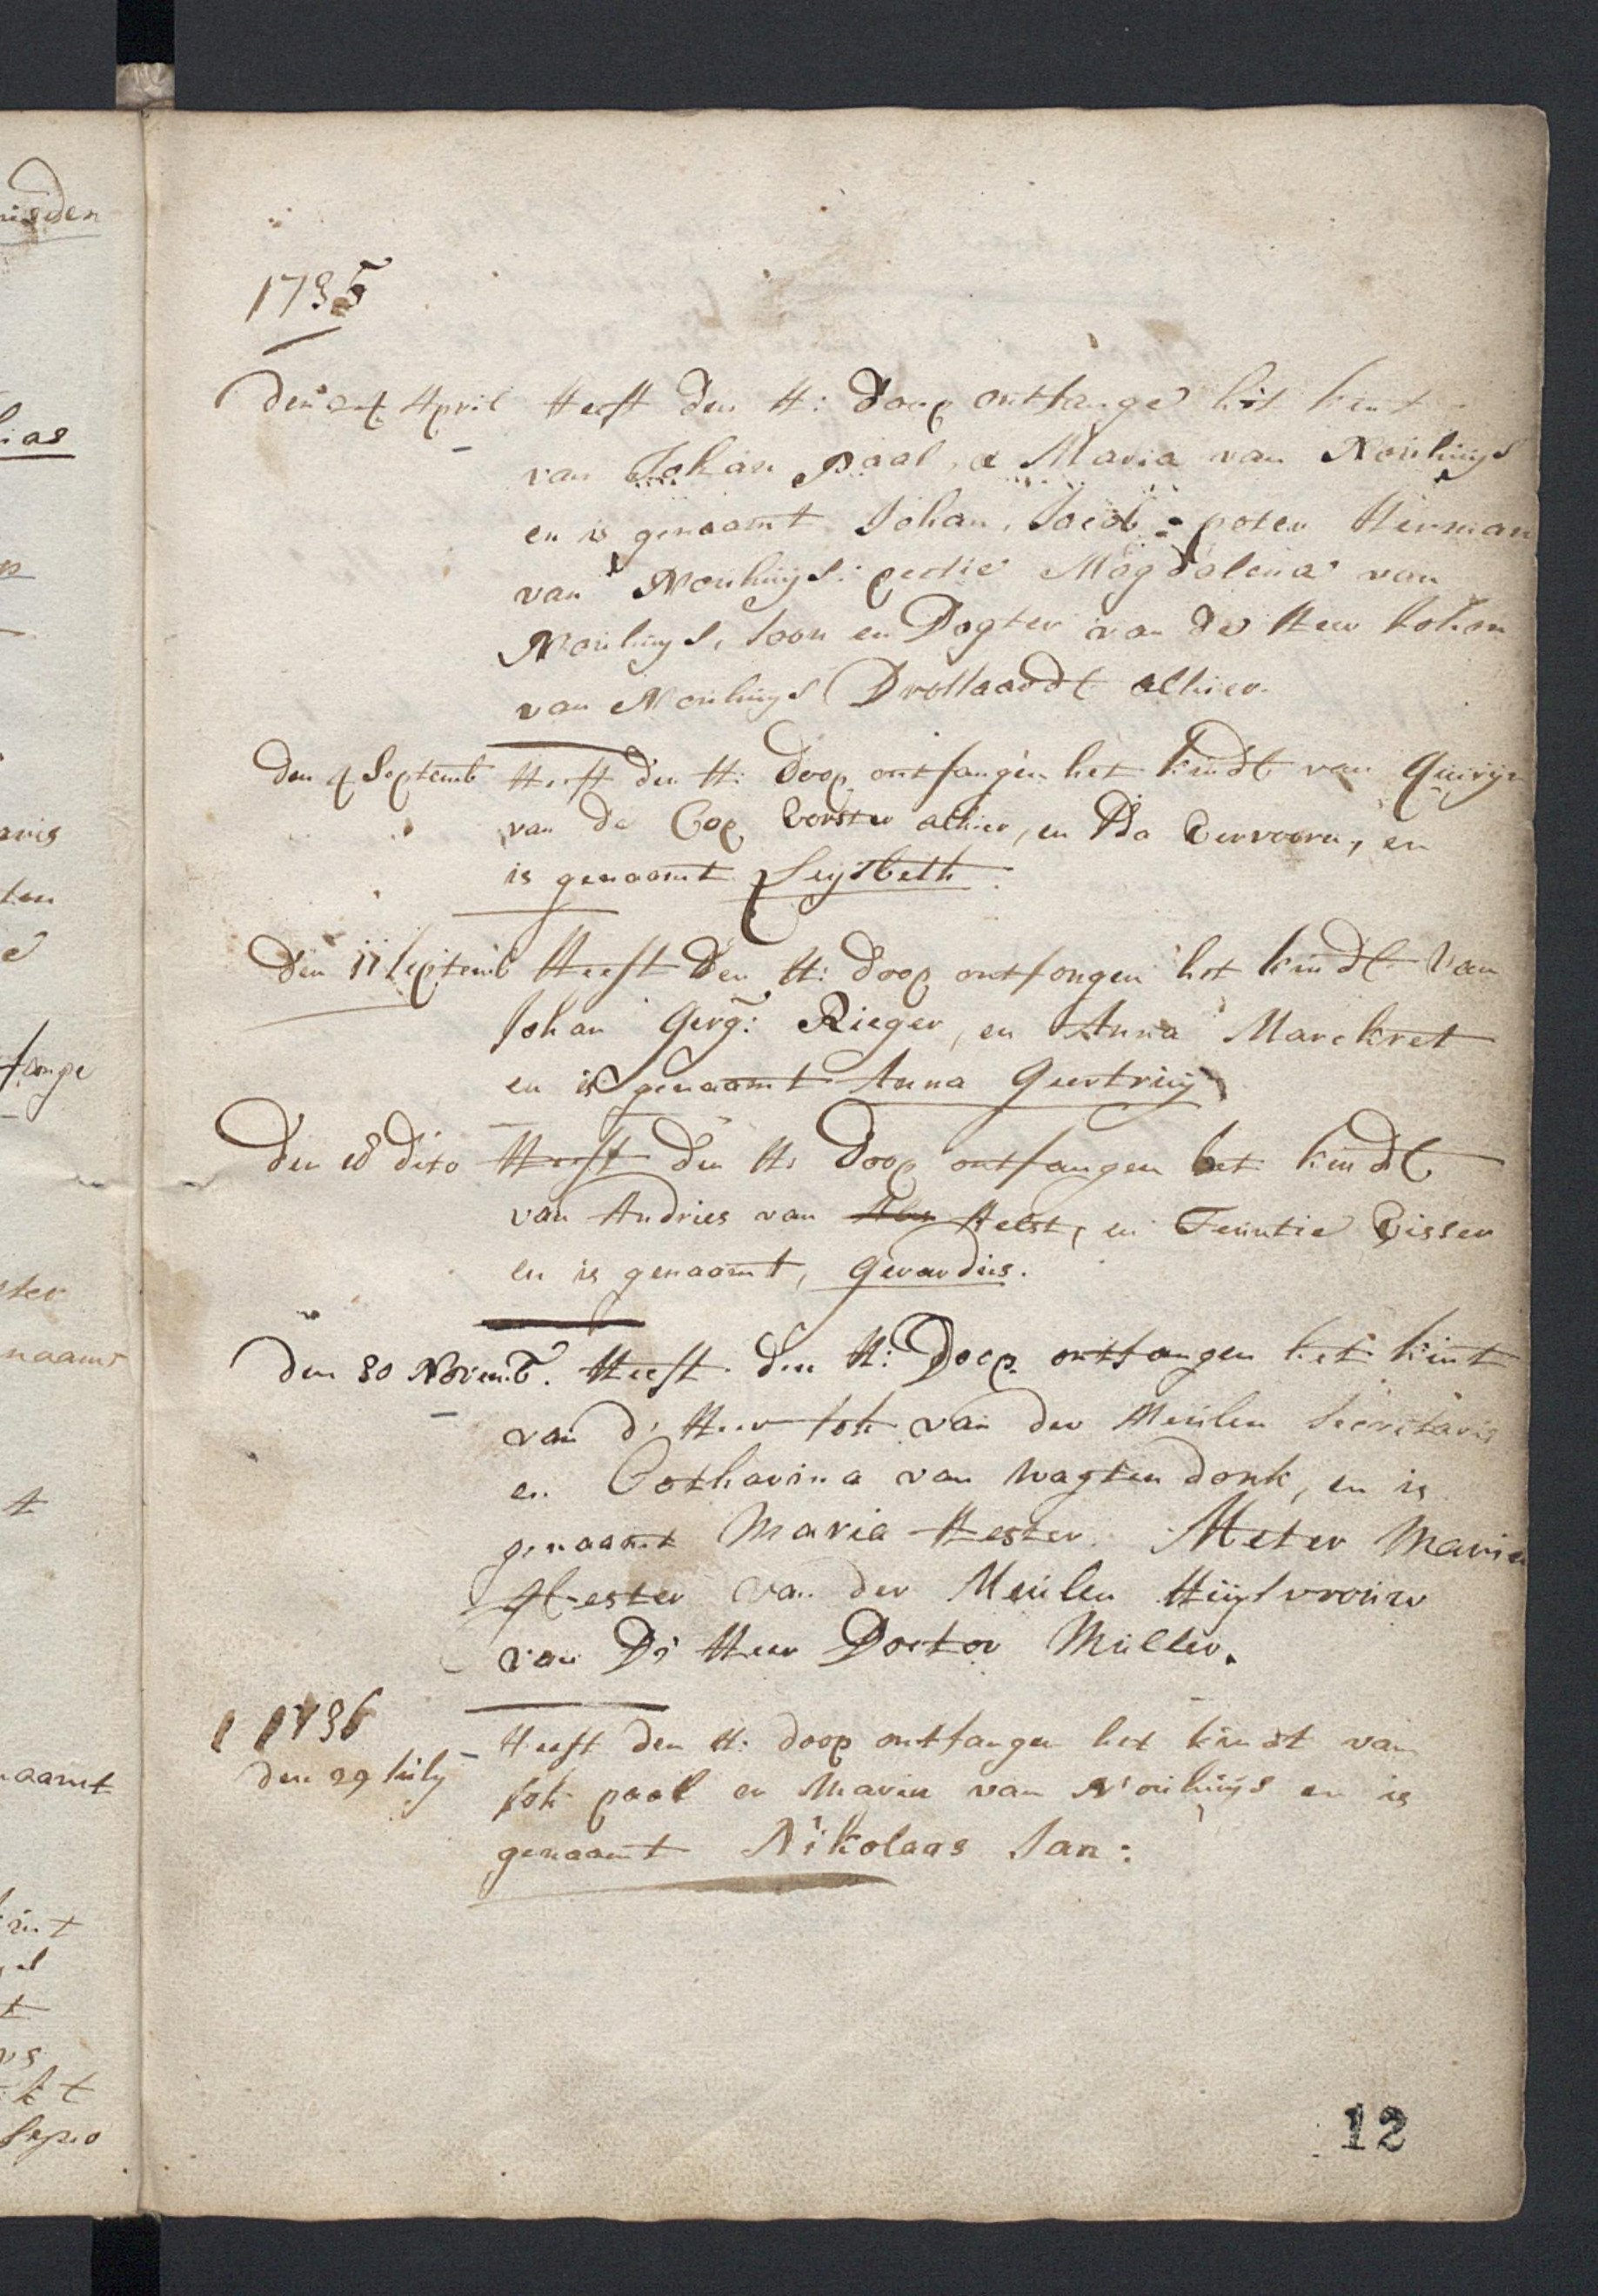 1735
Den 24 April Heeft den H: Doop ontfange het kint
van Johan paal, & Maria van Nouhuijs
en is genaamt Johan, Jacob: peter Herman
van Nouhuijs: petie Magdalena van
Nouhuijs, soon en Dogter van de Heer Johan
van Nouhuijs Drossaardt alhier.
Den 4 Septemb Heeft den H: Doop ontfangen het kindt van Quirijn
van de Cop Vorster alhier, en Ida Vervoorn, en
is genaamt Leijsbeth.
Den 11 Septemb Heeft den H: Doop ontfongen het kindt van
Johan Gerg: Rieger, en Anna Marckret
en is genaamt Anna Geertruij
Den 18 dito Heeft den H: Doop ontfangen het kindt
van Andries van Helst, en Teuntie Visser
en is genaamt, Gerardus.
Den 30 Novemb. Heeft den H: Doop ontfangen het kint
van d' Heer Joh van der Meulen Secretaris
en Catharina van Wagtendonk, en is
genaamt Maria Hester. Meter Maria
Hester van der Meulen Huijsvrouw
van D' Heer Doctor Muller.
1736
Den 29 Julij Heeft den H: doop ontfangen het kindt van
Joh paal en Maria van Nouhuijs en is
genaamt Nikolaas Jan:
12
isden
ias
aris
ten
fange
ster
naamt
t
naamt
kint
t